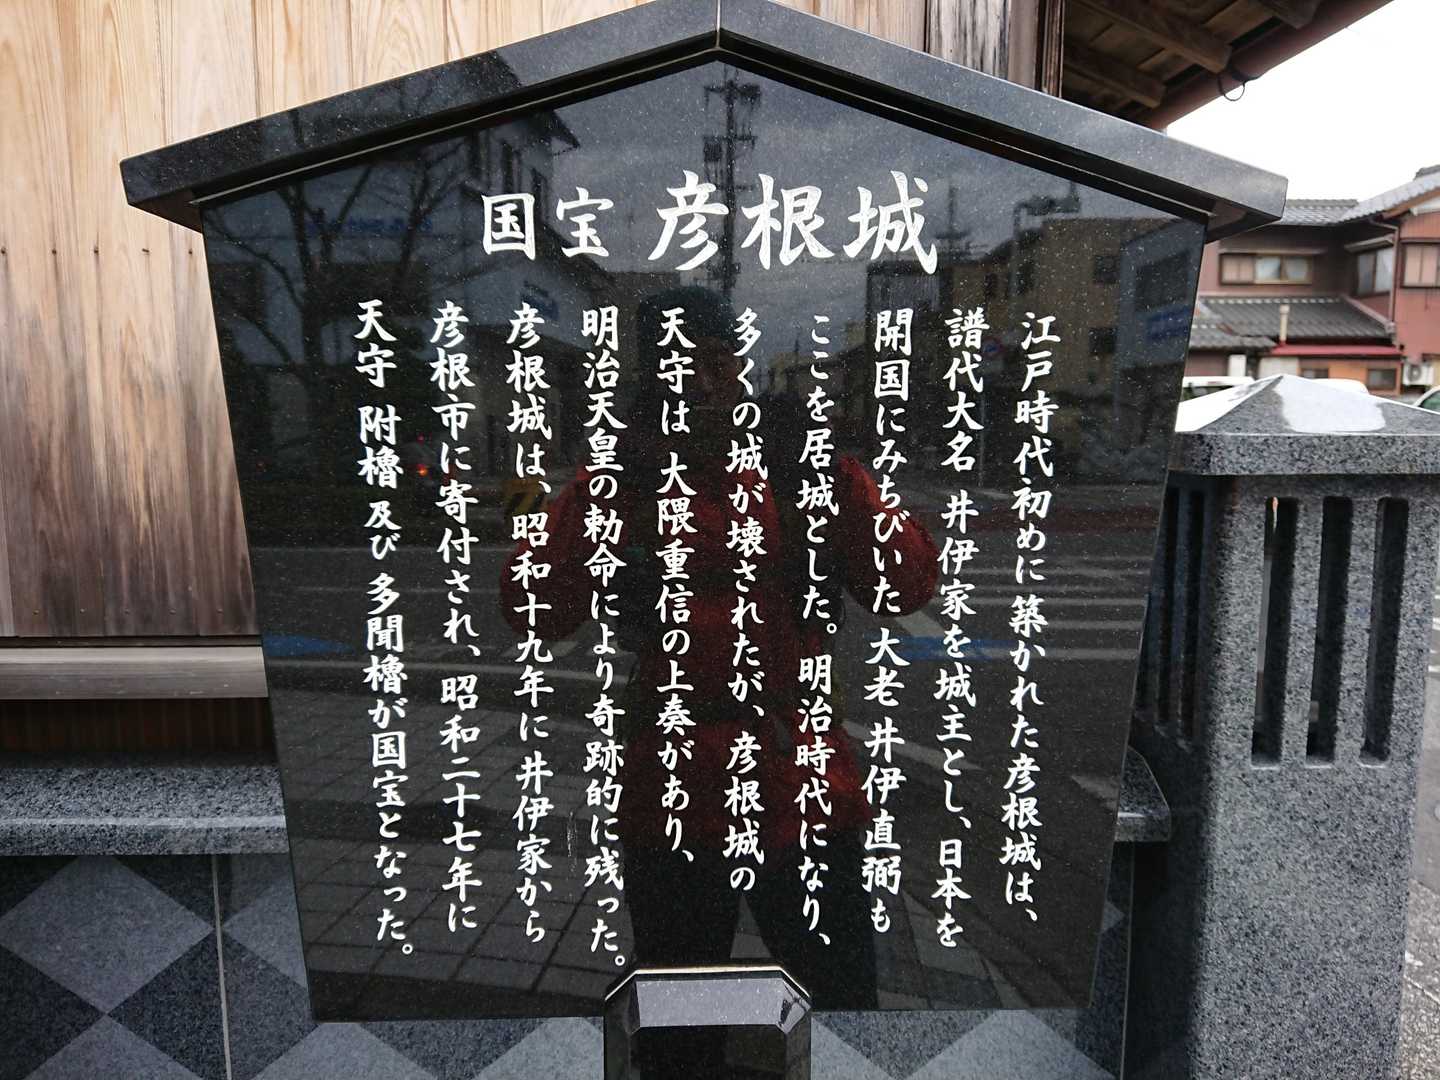 国宝 彦根城
江戸時代初めに築かれた彦根城は、
譜代大名 井伊家を城主とし、日本を
開国にみちびいた 大老 井伊直弼も
ここを居城とした。明治時代になり、
多くの城が壊されたが、彦根城の
天守は 大隈重信の上奏があり、
明治天皇の勅命により奇跡的に残った。
彦根城は、昭和十九年に 井伊家から
彦根市に寄付され、昭和二十七年に
天守 附櫓 及び 多聞櫓が国宝となった。